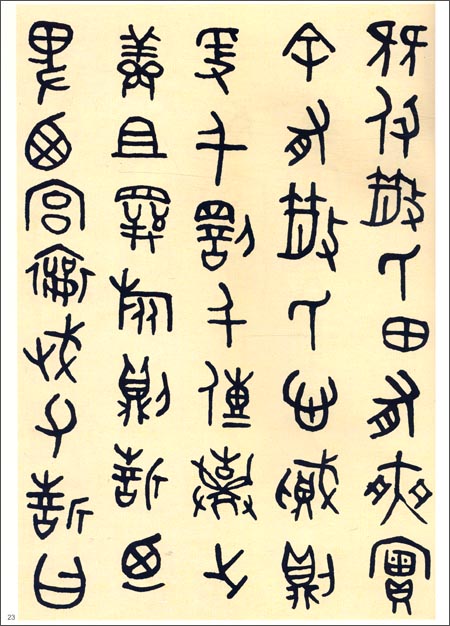 既付散氏田有爽實
余有散氏心賊則
爰千罰千傳棄之
鮮且旅則誓廼
卑西宮襄武父誓曰
23